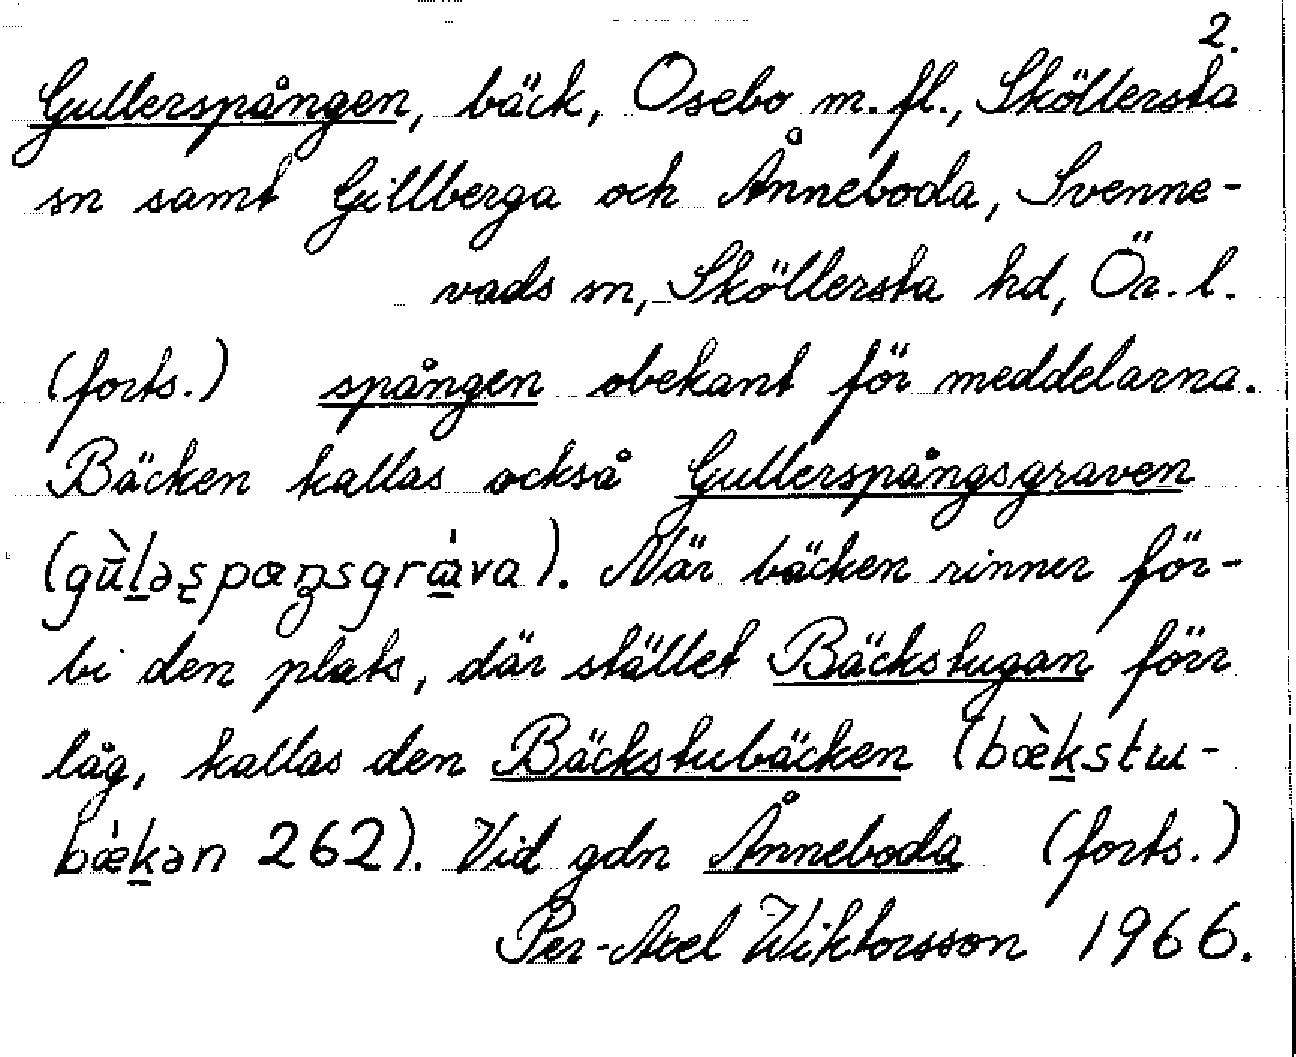 2.
Gullerspången, bäck, Osebo m. fl., Sköllersta
sn samt Gillberga och Ånneboda, Svenne-
vads sn, Sköllersta hd, Ör. l.
(forts.) spången obekant för meddelarna.
Bäcken kallas också Gullerspångsgraven
(gὺl̲əʂpaŋsgrɑ̲̀va). När bäcken rinner för-
bi den plats, där stället Bäckstugan förr
låg, kallas den Bäckstubäcken (bæ̀k̲stɯ-
bæ̀k̲ən 262). Vid gdn Ånneboda (forts.)
Per-Axel Wiktorsson 1966.